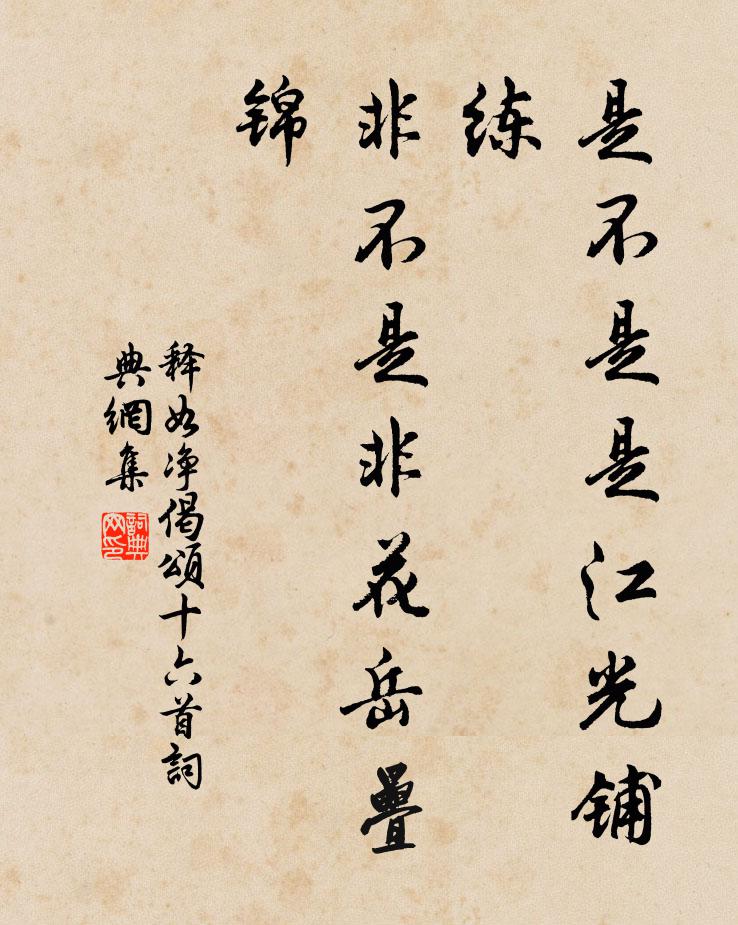 是不是是江光铺
练
非不是非花岳叠
锦
释如净偈颂十六首詞
典網集
詞典网印